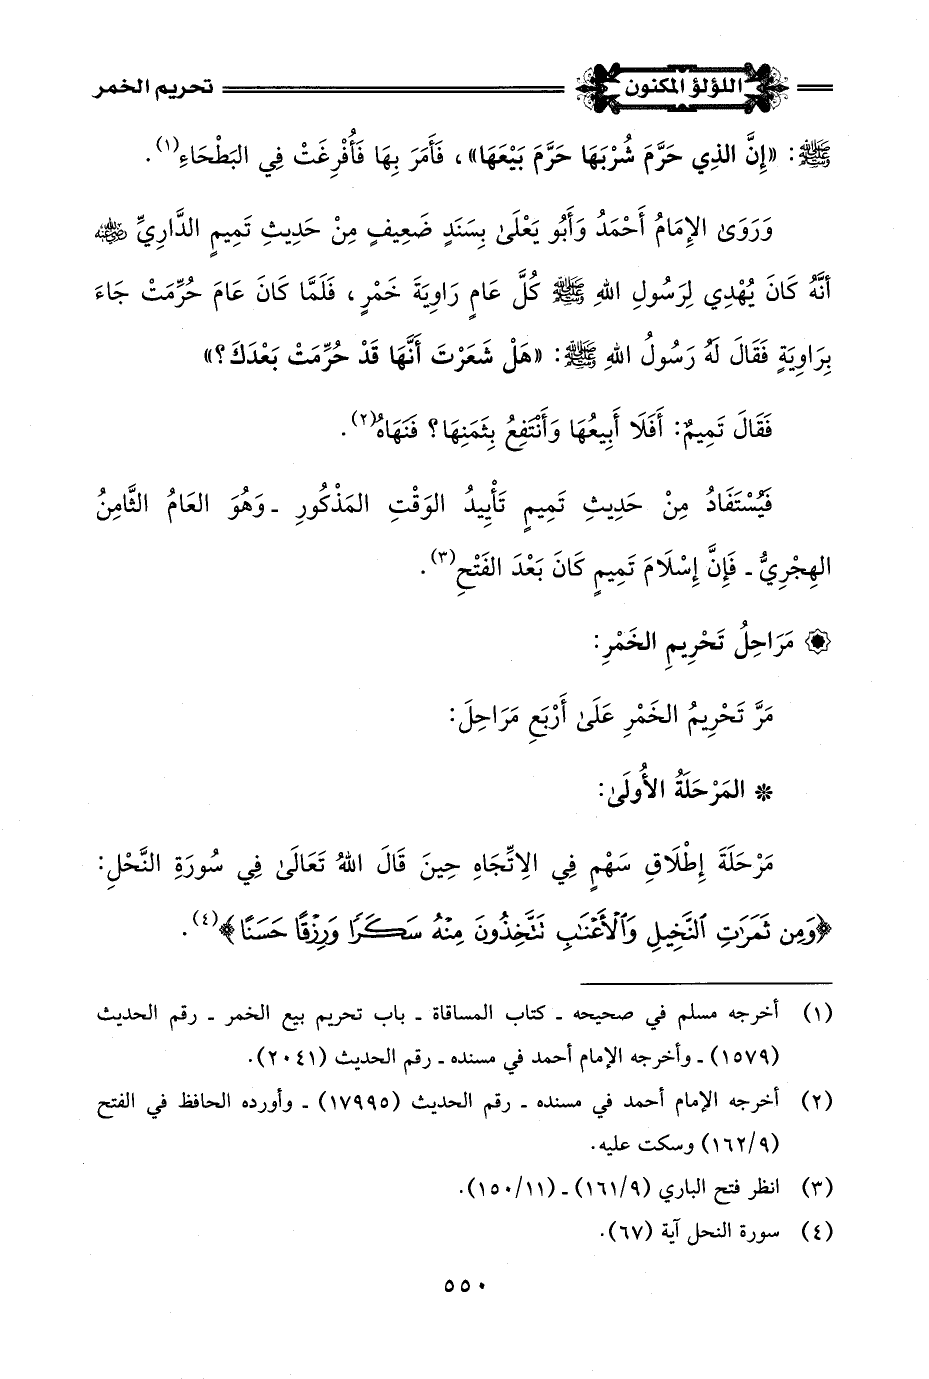 اللؤلؤ المكنون تحريم الخمر
ﷺ: «إِنَّ الذِي حَرَّمَ شُرْبَهَا حَرَّمَ بَيْعَهَا»، فَأَمَرَ بِهَا فَأُفْرِغَتْ فِي البَطْحَاءِ(١).
وَرَوَىٰ الإِمَامُ أَحْمَدُ وَأَبُو يَعْلَىٰ بِسَنَدٍ ضَعِيفٍ مِنْ حَدِيثِ تَمِيمٍ الدَّارِيِّ رضي الله عنه
أَنَّهُ كَانَ يُهْدِي لِرَسُولِ اللهِ ﷺ كُلَّ عَامٍ رَاوِيَةَ خَمْرٍ، فَلَمَّا كَانَ عَامَ حُرِّمَتْ جَاءَ
بِرَاوِيَةٍ فَقَالَ لَهُ رَسُولُ اللهِ ﷺ: «هَلْ شَعَرْتَ أَنَّهَا قَدْ حُرِّمَتْ بَعْدَكَ؟»
فَقَالَ تَمِيمٌ: أَفَلَا أَبِيعُهَا وَأَنْتَفِعُ بِثَمَنِهَا؟ فَنَهَاهُ(٢).
فَيُسْتَفَادُ مِنْ حَدِيثِ تَمِيمٍ تَأْيِيدُ الوَقْتِ المَذْكُورِ ـ وَهُوَ العَامُ الثَّامِنُ
الهِجْرِيُّ ـ فَإِنَّ إِسْلَامَ تَمِيمٍ كَانَ بَعْدَ الفَتْحِ(٣).
۞ مَرَاحِلُ تَحْرِيمِ الخَمْرِ:
مَرَّ تَحْرِيمُ الخَمْرِ عَلَىٰ أَرْبَعِ مَرَاحِلَ:
* المَرْحَلَةُ الأُولَىٰ:
مَرْحَلَةَ إِطْلَاقِ سَهْمٍ فِي الاِتِّجَاهِ حِينَ قَالَ اللهُ تَعَالَىٰ فِي سُورَةِ النَّحْلِ:
﴿وَمِن ثَمَرَٰتِ ٱلنَّخِيلِ وَٱلْأَعْنَٰبِ تَتَّخِذُونَ مِنْهُ سَكَرًا وَرِزْقًا حَسَنًا﴾(٤).
(١) أخرجه مسلم في صحيحه ـ كتاب المساقاة ـ باب تحريم بيع الخمر ـ رقم الحديث
(١٥٧٩) ـ وأخرجه الإمام أحمد في مسنده ـ رقم الحديث (٢٠٤١).
(٢) أخرجه الإمام أحمد في مسنده ـ رقم الحديث (١٧٩٩٥) ـ وأورده الحافظ في الفتح
(١٦٢/٩) وسكت عليه.
(٣) انظر فتح الباري (١٦١/٩) ـ (١٥٠/١١).
(٤) سورة النحل آية (٦٧).
٥٥٠